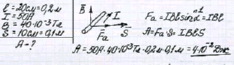 ℓ = 20см = 0,2м
I = 50А
B = 40·10⁻³Тл
S = 10см = 0,1м
A - ?
B I Fа S
Fа = IBℓ sinα = IBℓ
A = Fа·S = IBℓS
A = 50А·40·10⁻³Тл·0,2м·0,1м = 4·10⁻² Дж